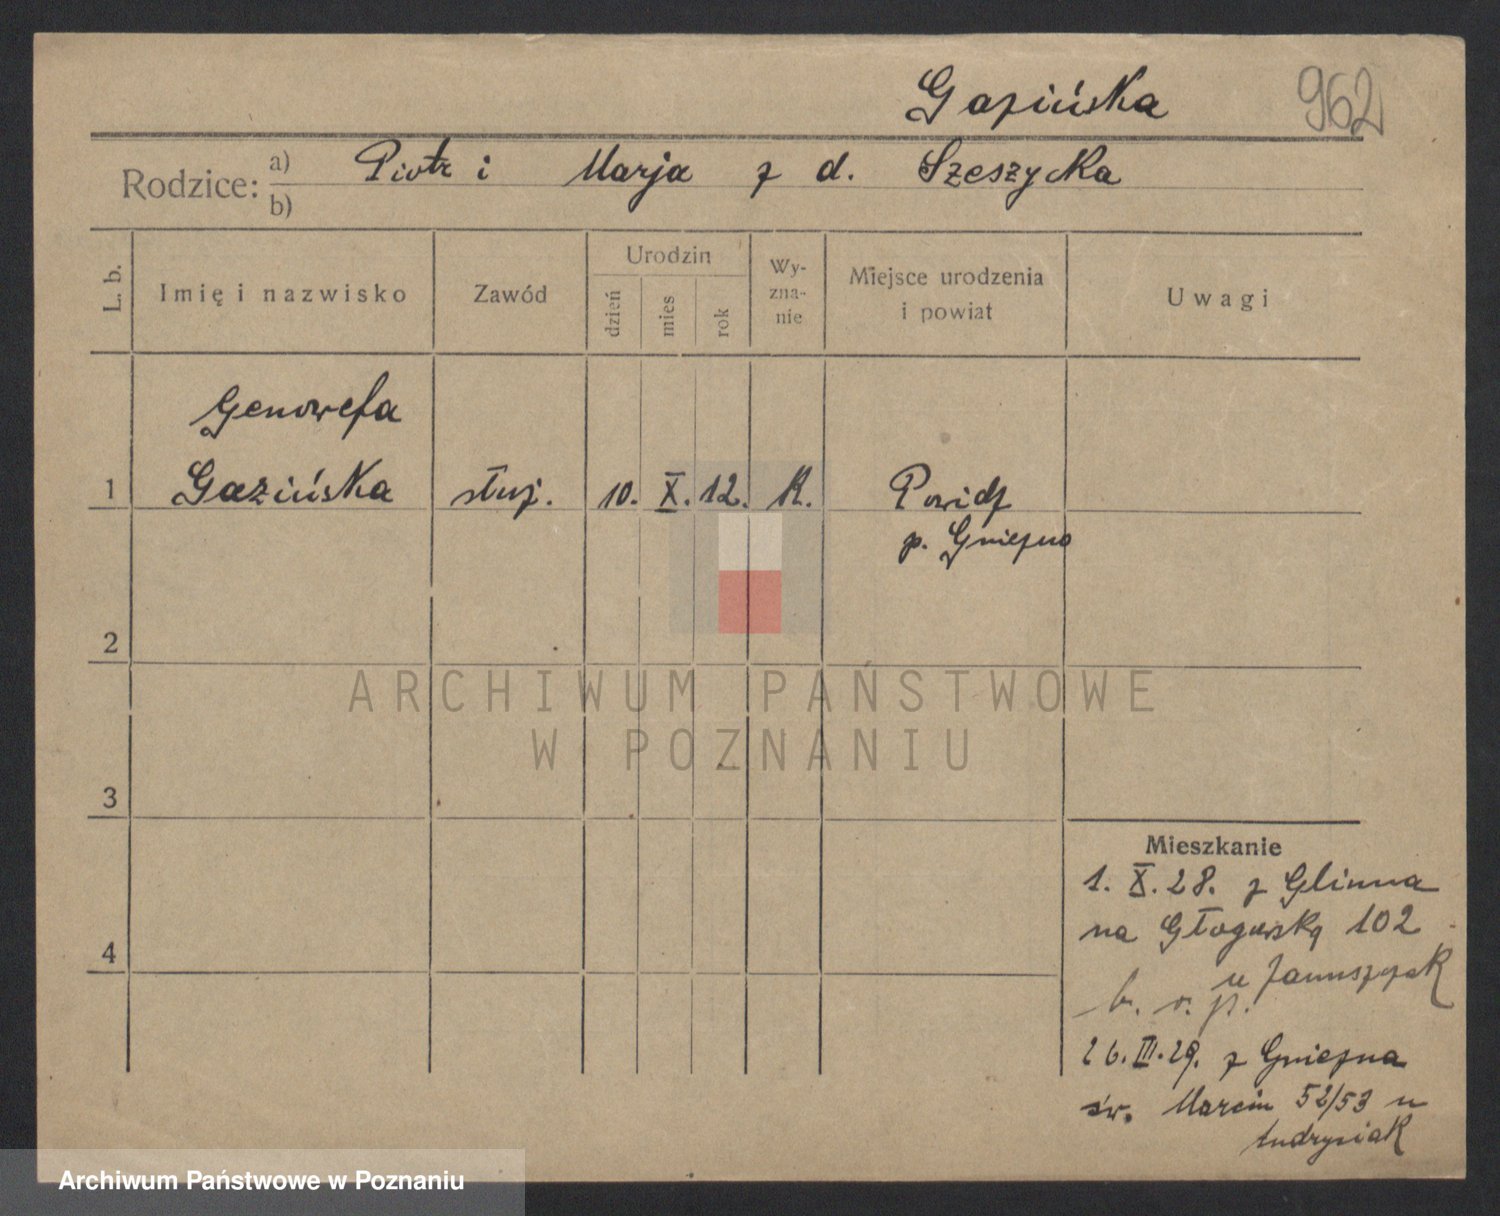 Gazińska 962
Rodzice: a) Piotr i Marja z d. Szeszycka
b)
L. b. Imię i nazwisko Zawód Urodzin dzień mies rok Wyzna-nie Miejsce urodzenia i powiat Uwagi
Genowefa
1 Gazińska służ. 10. X. 12. K. Powidz
p. Gniezno
2
ARCHIWUM PAŃSTWOWE
W POZNANIU
3
Mieszkanie
1. X. 28. z Glinna
na Głogowską 102
4
u Januszczak
b. r. p.
26. III. 29. z Gniezna
św. Marcin 52/53 u
Andrysiak
Archiwum Państwowe w Poznaniu